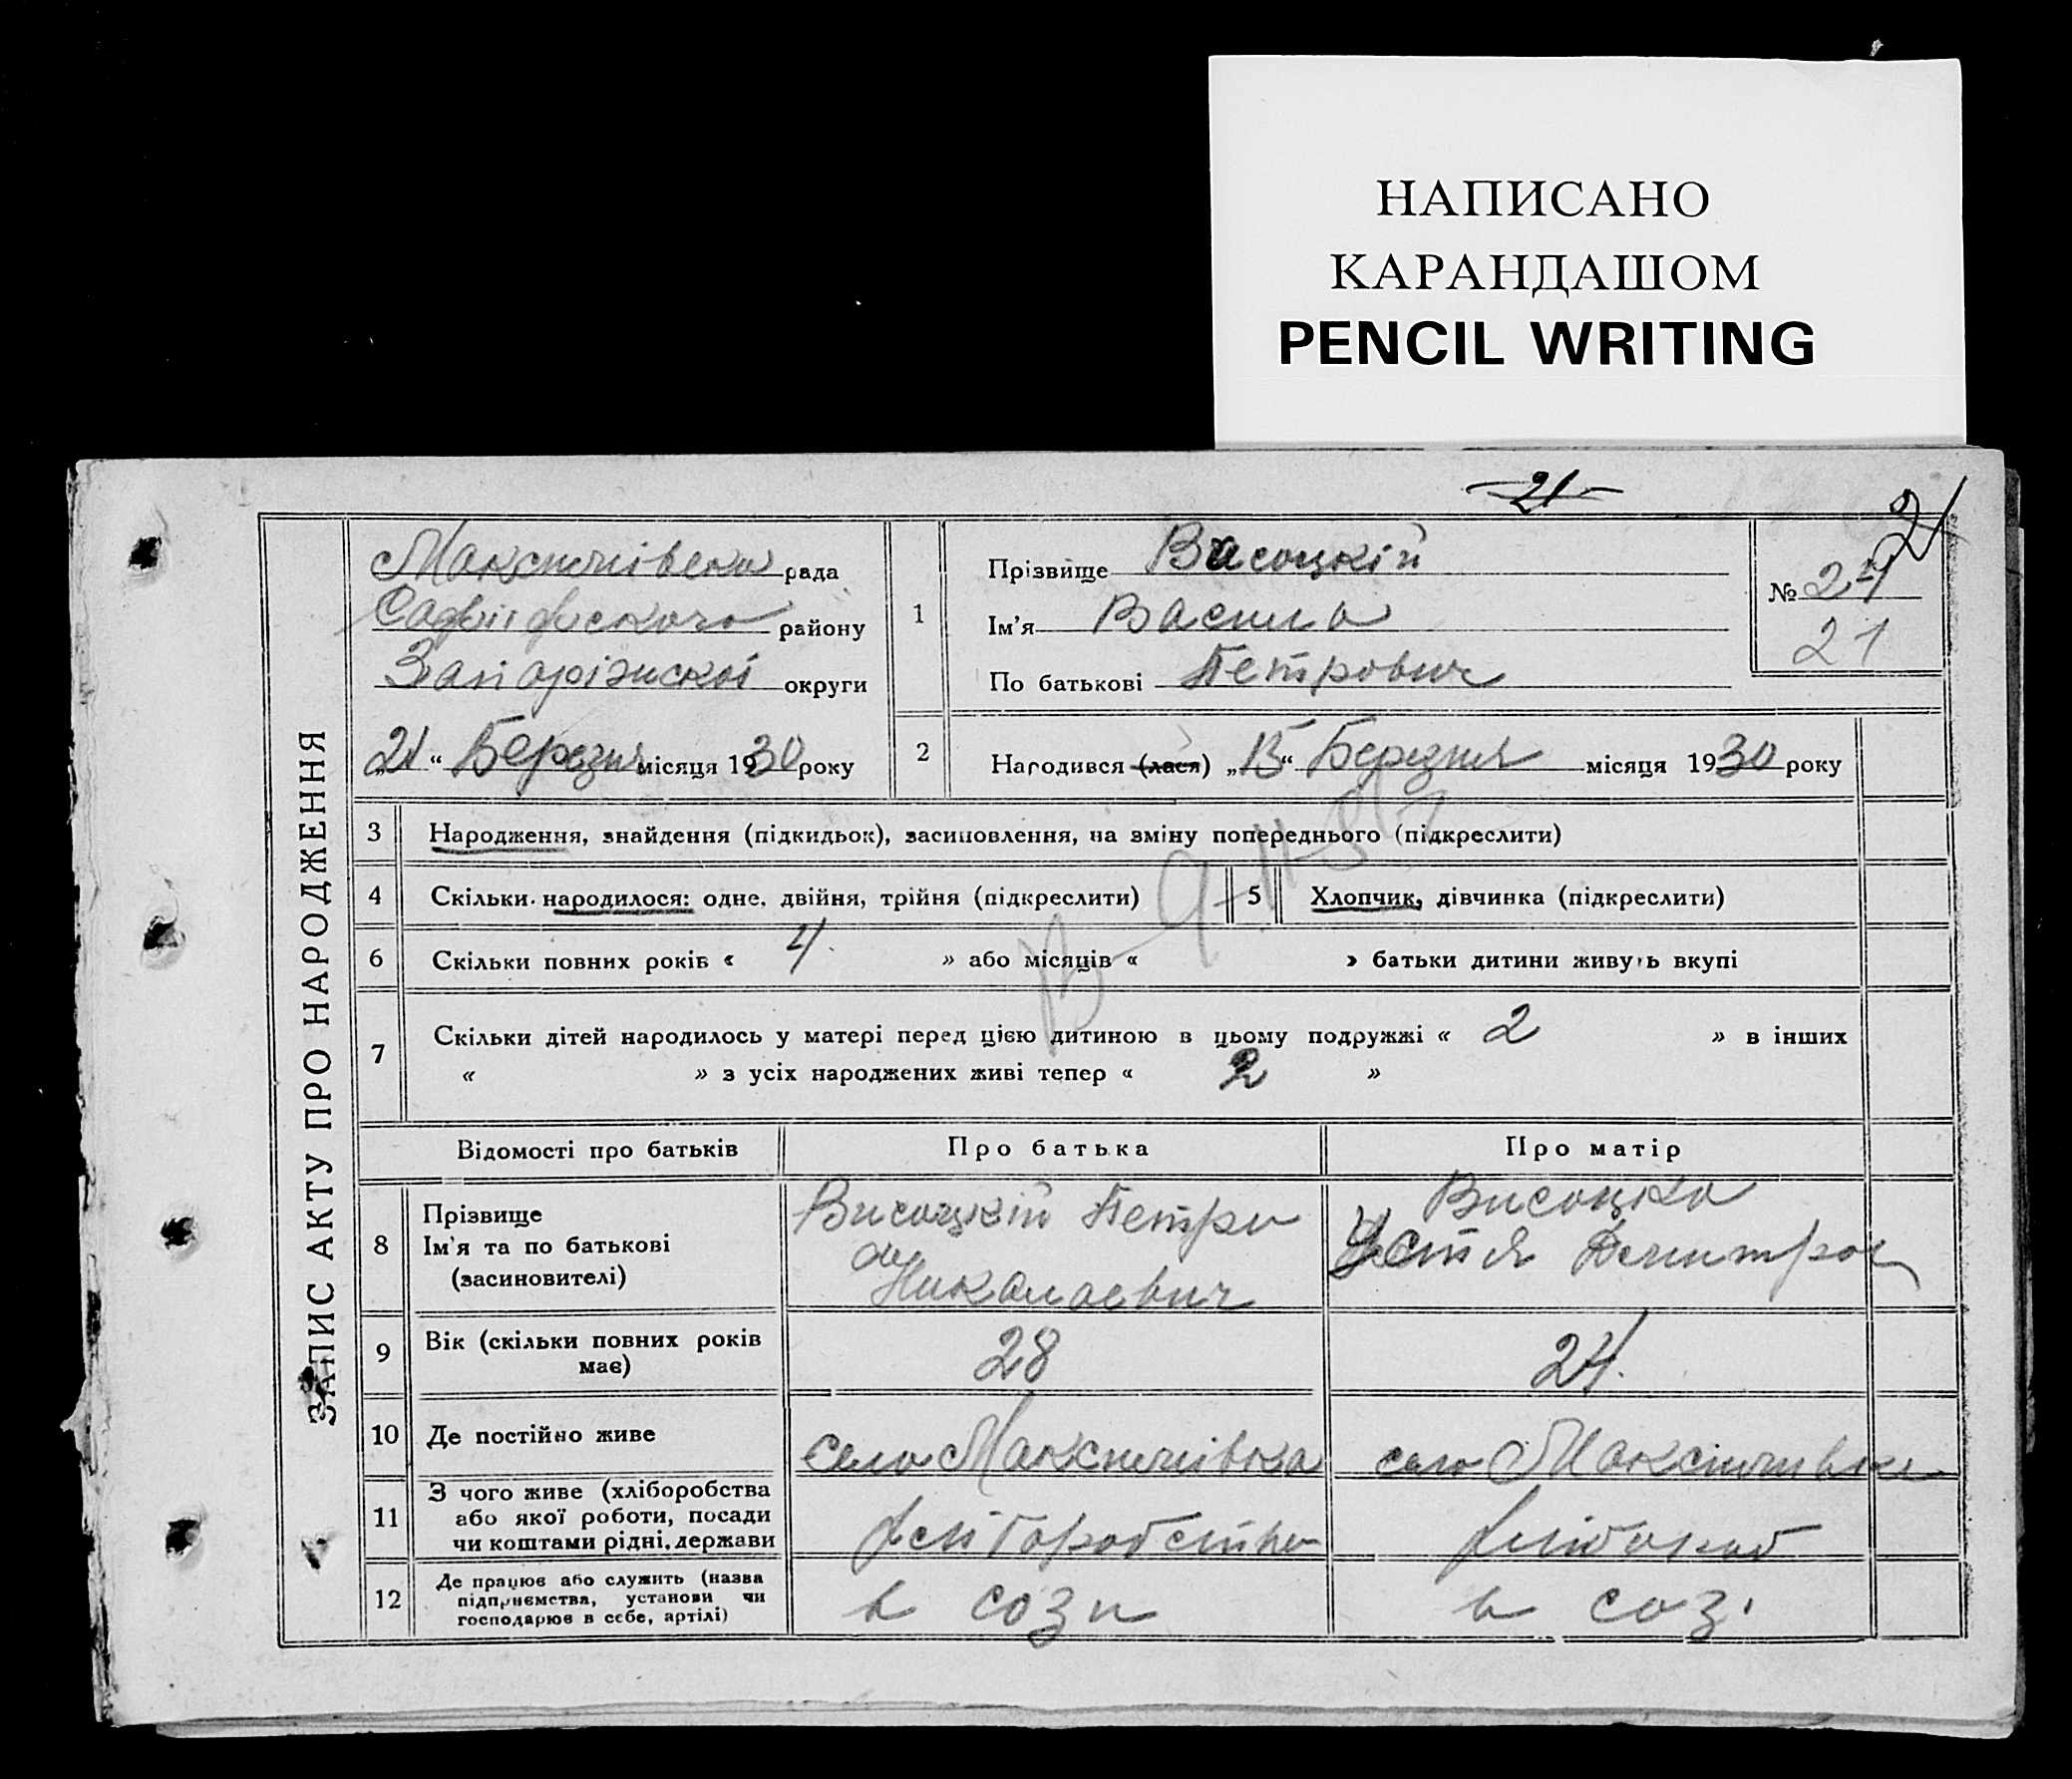 НАПИСАНО
КАРАНДАШОМ
PENCIL WRITING
21
21
ЗАПИС АКТУ ПРО НАРОДЖЕННЯ
рада
району
Запоріжскої округи
„21“ Березня місяця 1930 року
1
Прізвище Висоцкій
Ім'я Василь
По батькові Петрович
№ 24
21
2
Народився (лася) „13“ Березня місяця 1930 року
3
Народження, знайдення (підкидьок), засиновлення, на зміну попереднього (підкреслити)
4
Скільки народилося: одне, двійня, трійня (підкреслити)
5
Хлопчик, дівчинка (підкреслити)
6
Скільки повних років « 4 » або місяців « » батьки дитини живуть вкупі
7
Скільки дітей народилось у матері перед цією дитиною в цьому подружжі « 2 » в інших
« » з усіх народжених живі тепер « 2 »
Відомості про батьків
Про батька
Про матір
8
Прізвище
Ім'я та по батькові
(засиновителі)
Висоцкій Петро
Николаевич
Висоцка
Устя Дмитров
9
Вік (скільки повних років
має)
28
24
10
Де постійно живе
село Максимівка
село Максимивка
11
З чого живе (хліборобства
або якої роботи, посади
чи коштами рідні, держави
хліборобство
хлібороб
12
Де працює або служить (назва
підприємства, установи чи
господарює в себе, артілі)
в созі
в соз